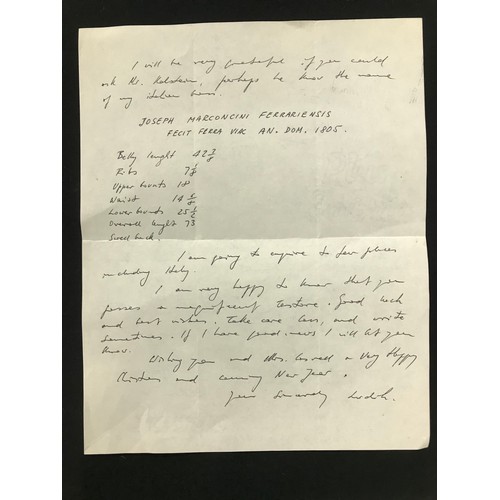 I will be very grateful if you could
ask Mr. perhaps he know the name
of my italien bass.
JOSEPH MARCONCINI FERRARIENSIS
FECIT FERRA VIAC AN. DOM. 1805.
Belly lenght 42 3/8
Ribs 7 1/8
Upper bouts 18
Waist 14 6/8
Lower bouts 25 1/2
Overall lenght 73
back.
I am going to enquire to few places
including Italy.
I am very happy to know that you
posses a magnificent Testore. Good luck
and best wishes. Take care and write
sometimes. If I have good news I will let you
know.
Wishing you and Mrs. a Very Happy
Christmas and coming New Year.
Your sincerely